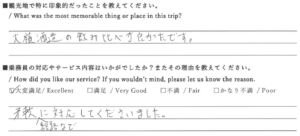 ■観光地で特に印象的だったことを教えてください。
/ What was the most memorable thing or place in this trip?
大嶺酒造の飲み比べが良かったです。
■乗務員の対応やサービス内容はいかがでしたか？またその理由を教えてください。
/ How did you like our service? If you wouldn't mind, please let us know the reason.
☑大変満足/ Excellent □満足 / Very Good □不満 / Fair □かなり不満 / Poor
に対応してくださいました。